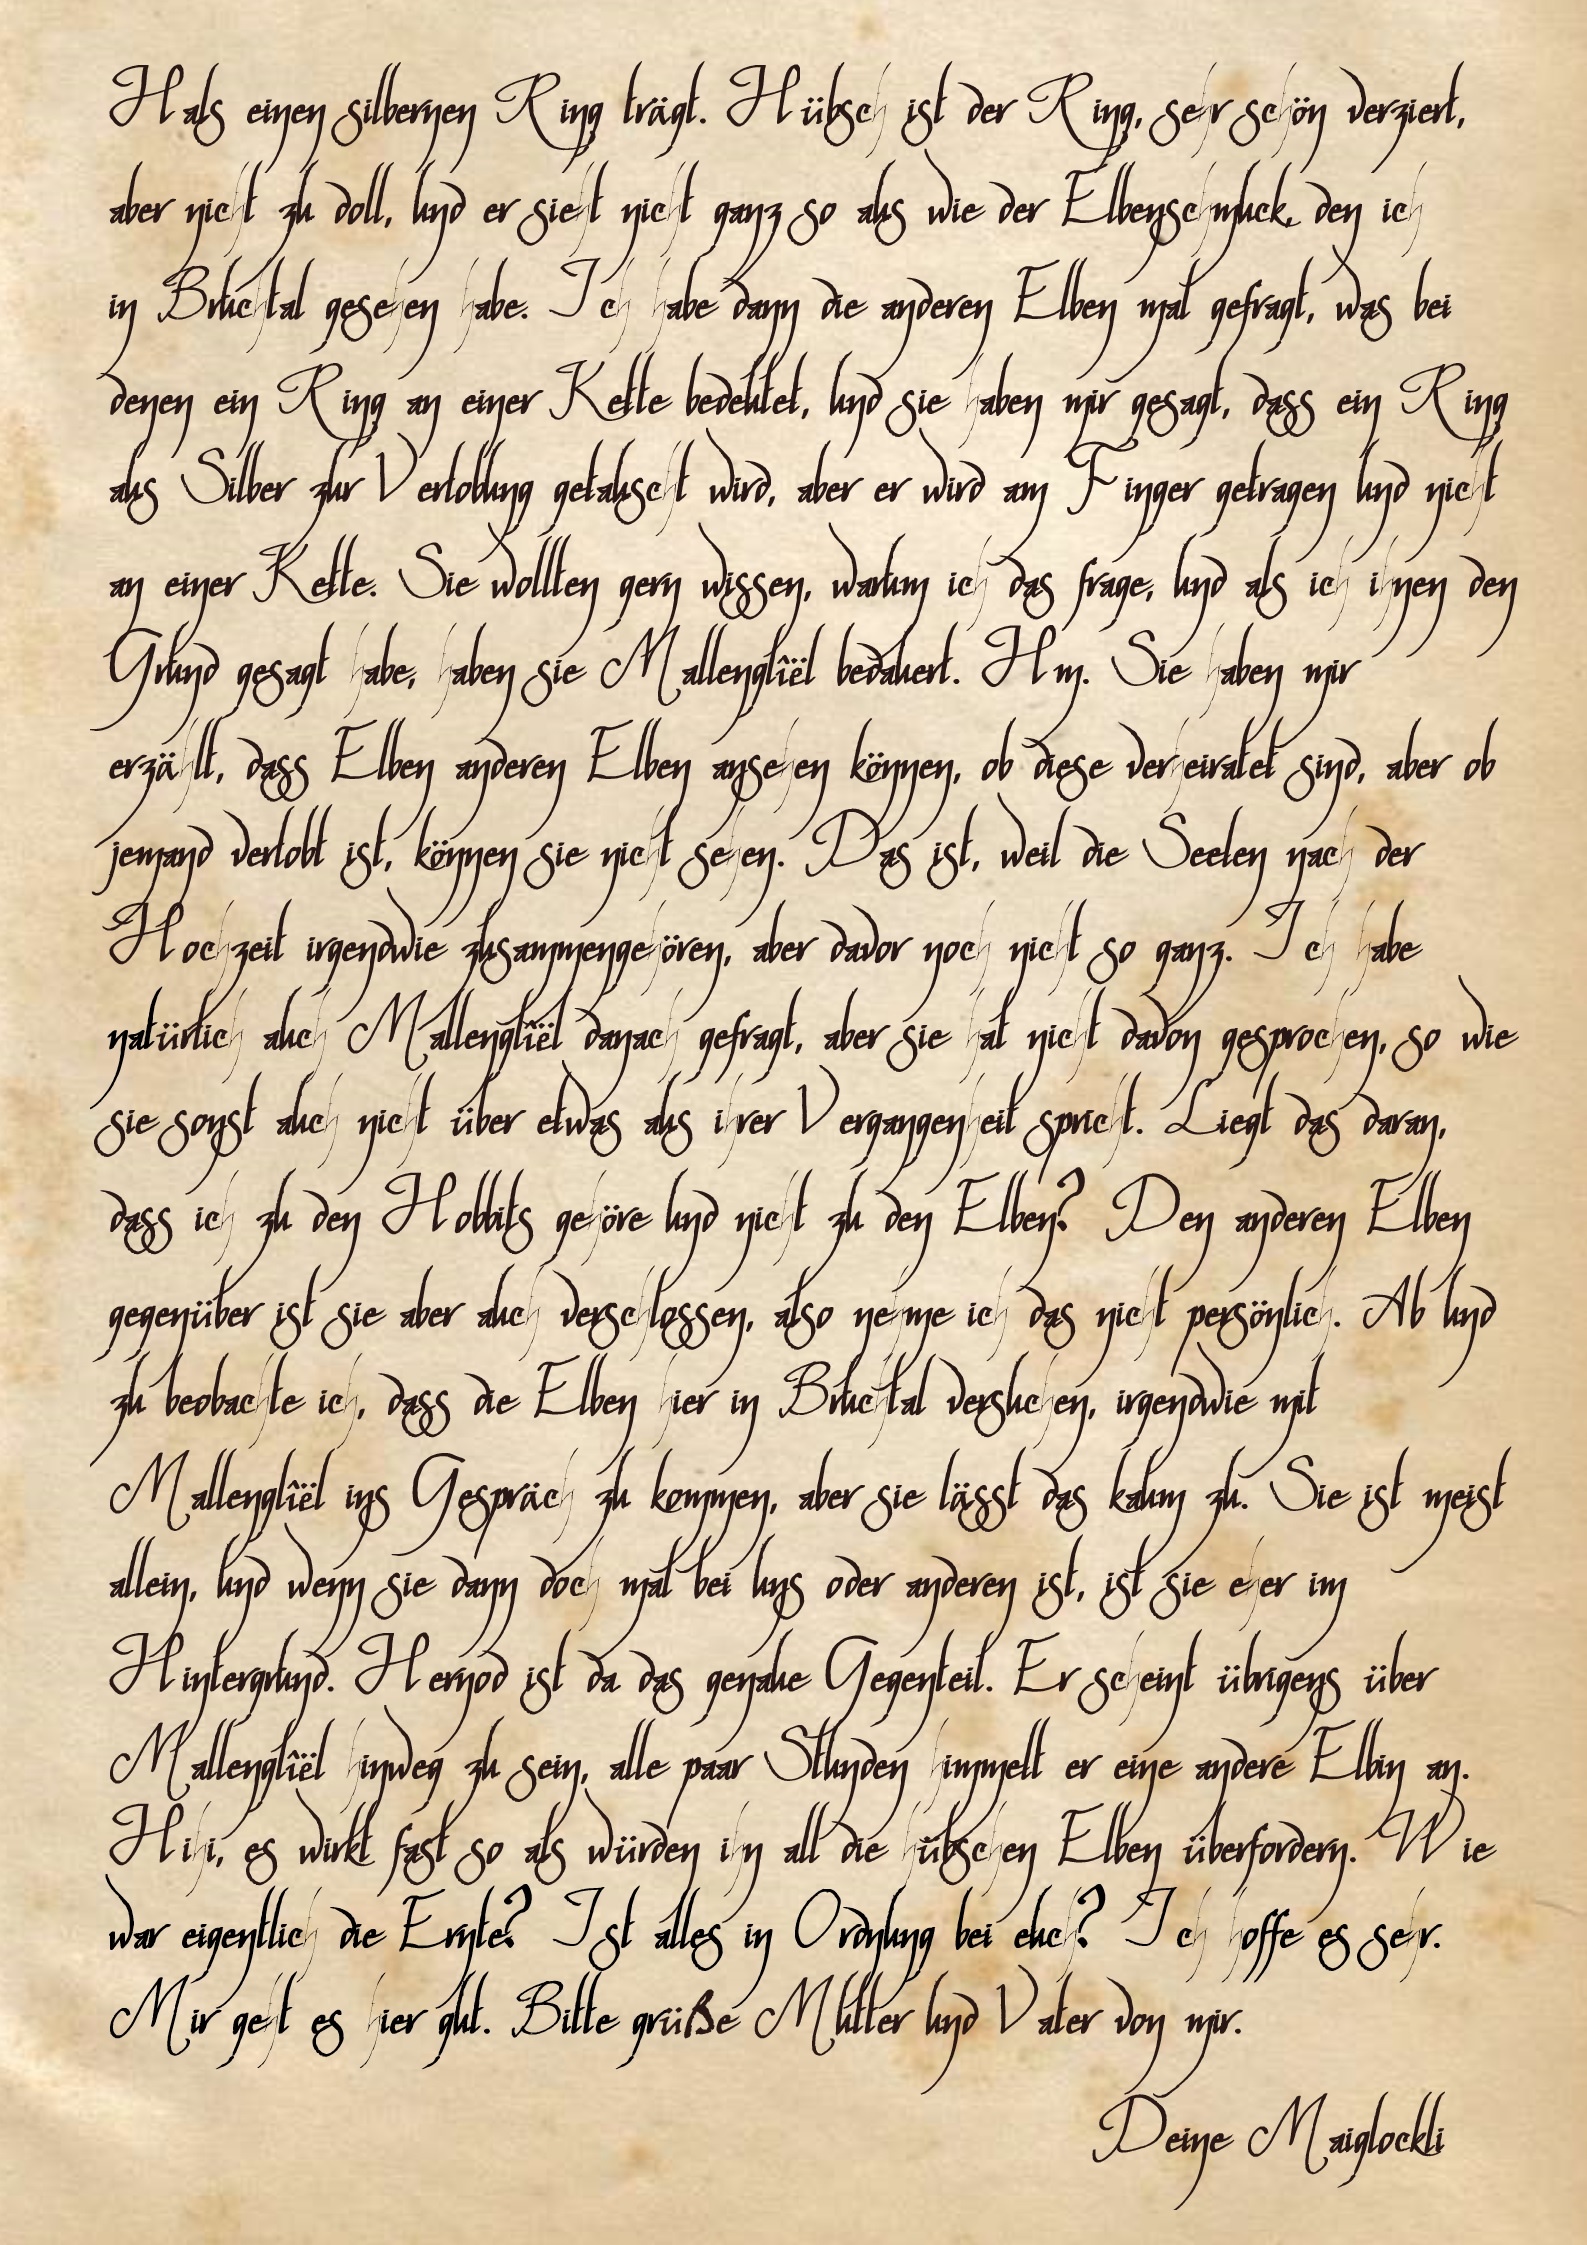 Hals einen silbernen Ring trägt. Hübsch ist der Ring, sehr schön verziert,
aber nicht zu doll, und er sieht nicht ganz so aus wie der Elbenschmuck, den ich
in Bruchtal gesehen habe. Ich habe dann die anderen Elben mal gefragt, was bei
denen ein Ring an einer Kette bedeutet, und sie haben mir gesagt, dass ein Ring
aus Silber zur Verlobung getauscht wird, aber er wird am Finger getragen und nicht
an einer Kette. Sie wollten gern wissen, warum ich das frage, und als ich ihnen den
Grund gesagt habe, haben sie Mallenglîël bedauert. Hm. Sie haben mir
erzählt, dass Elben anderen Elben ansehen können, ob diese verheiratet sind, aber ob
jemand verlobt ist, können sie nicht sehen. Das ist, weil die Seelen nach der
Hochzeit irgendwie zusammengehören, aber davor noch nicht so ganz. Ich habe
natürlich auch Mallenglîël danach gefragt, aber sie hat nicht davon gesprochen, so wie
sie sonst auch nicht über etwas aus ihrer Vergangenheit spricht. Liegt das daran,
dass ich zu den Hobbits gehöre und nicht zu den Elben? Den anderen Elben
gegenüber ist sie aber auch verschlossen, also nehme ich das nicht persönlich. Ab und
zu beobachte ich, dass die Elben hier in Bruchtal versuchen, irgendwie mit
Mallenglîël ins Gespräch zu kommen, aber sie lässt das kaum zu. Sie ist meist
allein, und wenn sie dann doch mal bei uns oder anderen ist, ist sie eher im
Hintergrund. Hernod ist da das genaue Gegenteil. Er scheint übrigens über
Mallenglîël hinweg zu sein, alle paar Stunden himmelt er eine andere Elbin an.
Hihi, es wirkt fast so als würden ihn all die hübschen Elben überfordern. Wie
war eigentlich die Ernte? Ist alles in Ordnung bei euch? Ich hoffe es sehr.
Mir geht es hier gut. Bitte grüße Mutter und Vater von mir.
Deine Maiglockli